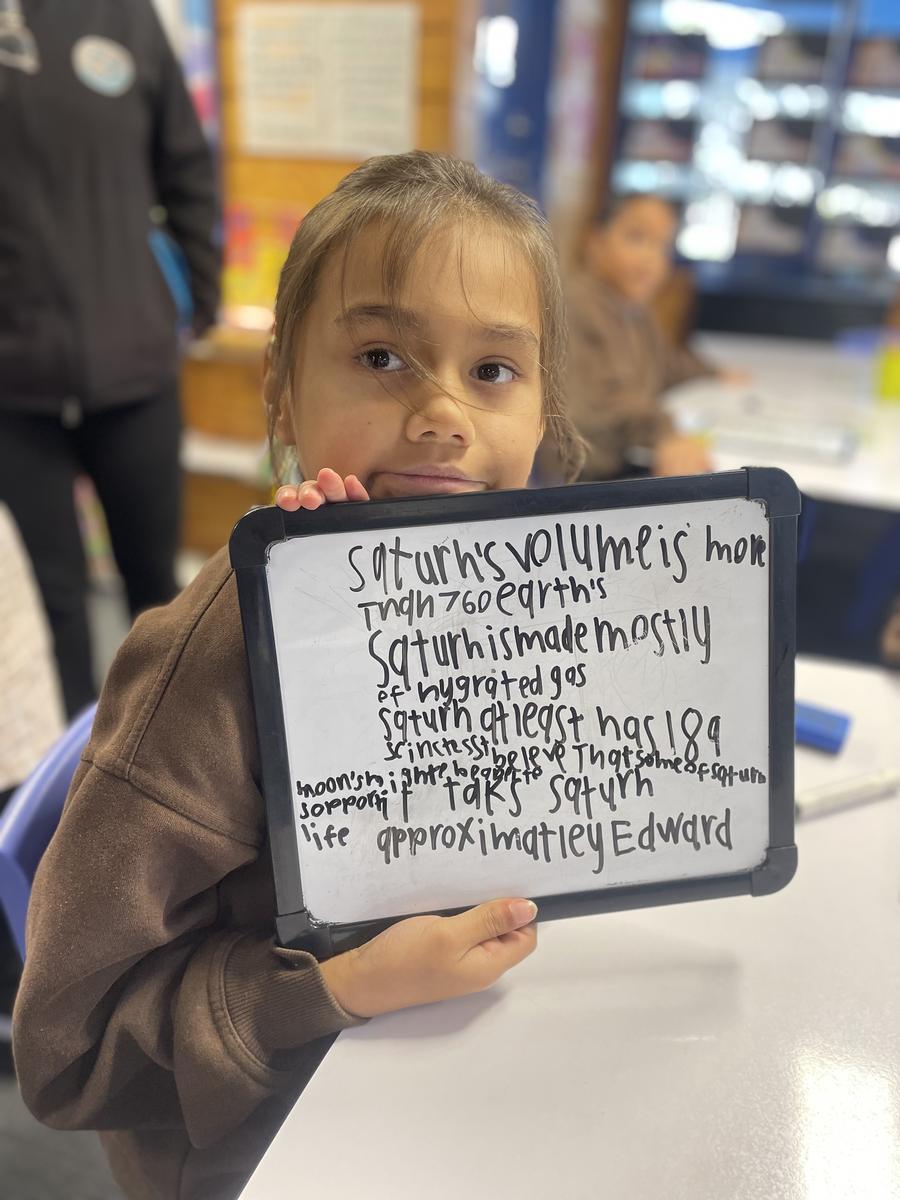 saturn's volume is more
Than 760 earth's
Saturn is made mostly
of hygrated gas
saturn at least has 18 a
scinctesst beleve That some of saturn
moon's mighte be able to
sopport if taks saturn
life approximatley Edward